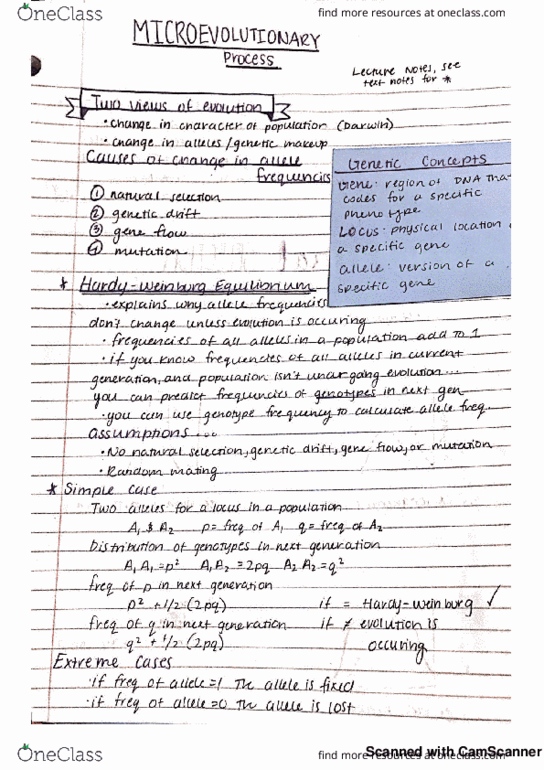 OneClass
find more resources at oneclass.com
MICROEVOLUTIONARY
Process
Lecture Notes, see
text notes for *
Two views of evolution
• change in character of population (Darwin)
• change in alleles/genetic makeup
Causes of change in allele
frequencies
① natural selection
② genetic drift
③ gene flow
④ mutation
Genetic Concepts
Gene: region of DNA tha
codes for a specific
phenotype
Locus: physical location
a specific gene
allele: version of a
specific gene
* Hardy-Weinburg Equilibrium
• explains why allele frequencies
don't change unless evolution is occuring
• frequencies of all alleles in a population add to 1
• if you know frequencies of all alleles in current
generation, and population isn't undergoing evolution...
you can predict frequencies of genotypes in next gen
• you can use genotype frequency to calculate allele freq.
assumptions...
• No natural selection, genetic drift, gene flow, or mutation
• Random mating
* Simple case
Two alleles for a locus in a population
A₁ & A₂ p = freq of A₁ q = freq of A₂
Distribution of genotypes in next generation
A₁A₁ = p² A₁A₂ = 2pq A₂A₂ = q²
freq of p in next generation
p² + 1/2 (2pq) if = Hardy-weinburg ✓
freq of q in next generation if ≠ evolution is
q² + 1/2 (2pq) occuring
Extreme cases
• if freq of allele = 1 The allele is fixed
• if freq of allele = 0 The allele is lost
OneClass
find more resources at oneclass.com
Scanned with CamScanner